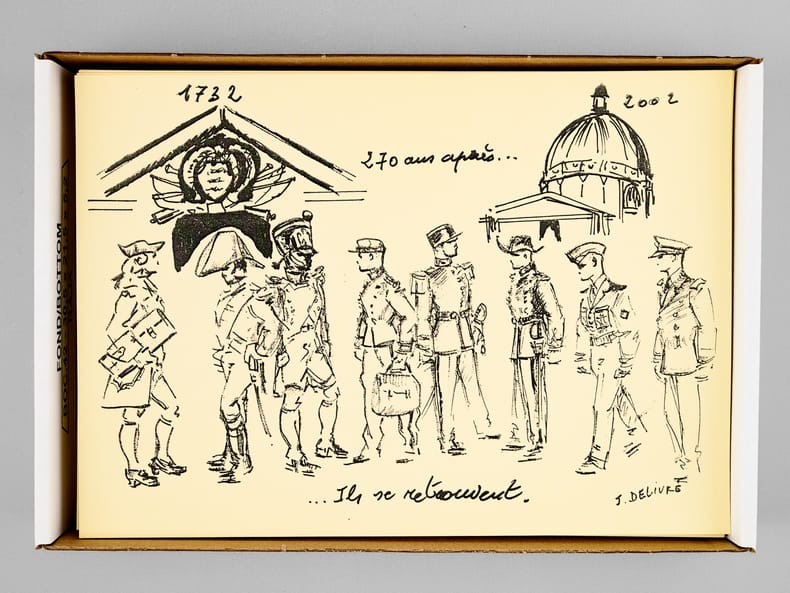 1732
2002
270 ans après...
... Ils se retrouvent.
J. DELIVRÉ
FOND/BOTTOM